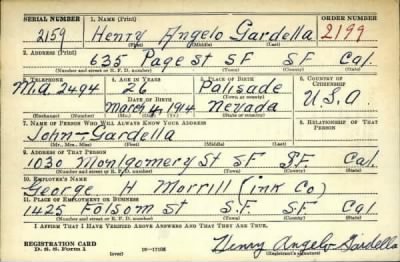 SERIAL NUMBER 1. NAME (Print) ORDER NUMBER
2159 Henry Angelo Gardella 2199
(First) (Middle) (Last)
2. ADDRESS (Print)
635 Page St SF SF Cal.
(Number and street or R. F. D. number) (Town) (County) (State)
3. TELEPHONE 4. AGE IN YEARS 5. PLACE OF BIRTH 6. COUNTRY OF CITIZENSHIP
Ma 2494 26 Palisade U.S.A
DATE OF BIRTH (Town or county)
March 4, 1914 Nevada
(Exchange) (Number) (Mo.) (Day) (Yr.) (State or country)
7. NAME OF PERSON WHO WILL ALWAYS KNOW YOUR ADDRESS 8. RELATIONSHIP OF THAT PERSON
John Gardella
(Mr., Mrs., Miss) (First) (Middle) (Last)
9. ADDRESS OF THAT PERSON
1030 Montgomery St SF S.F. Cal
(Number and street or R. F. D. number) (Town) (County) (State)
10. EMPLOYER'S NAME
George H Morrill (ink Co)
11. PLACE OF EMPLOYMENT OR BUSINESS
1425 Folsom St S.F. S.F. Cal
(Number and street or R. F. D. number) (Town) (County) (State)
I AFFIRM THAT I HAVE VERIFIED ABOVE ANSWERS AND THAT THEY ARE TRUE.
REGISTRATION CARD
D. S. S. Form 1
Henry Angelo Gardella
(Registrant's signature)